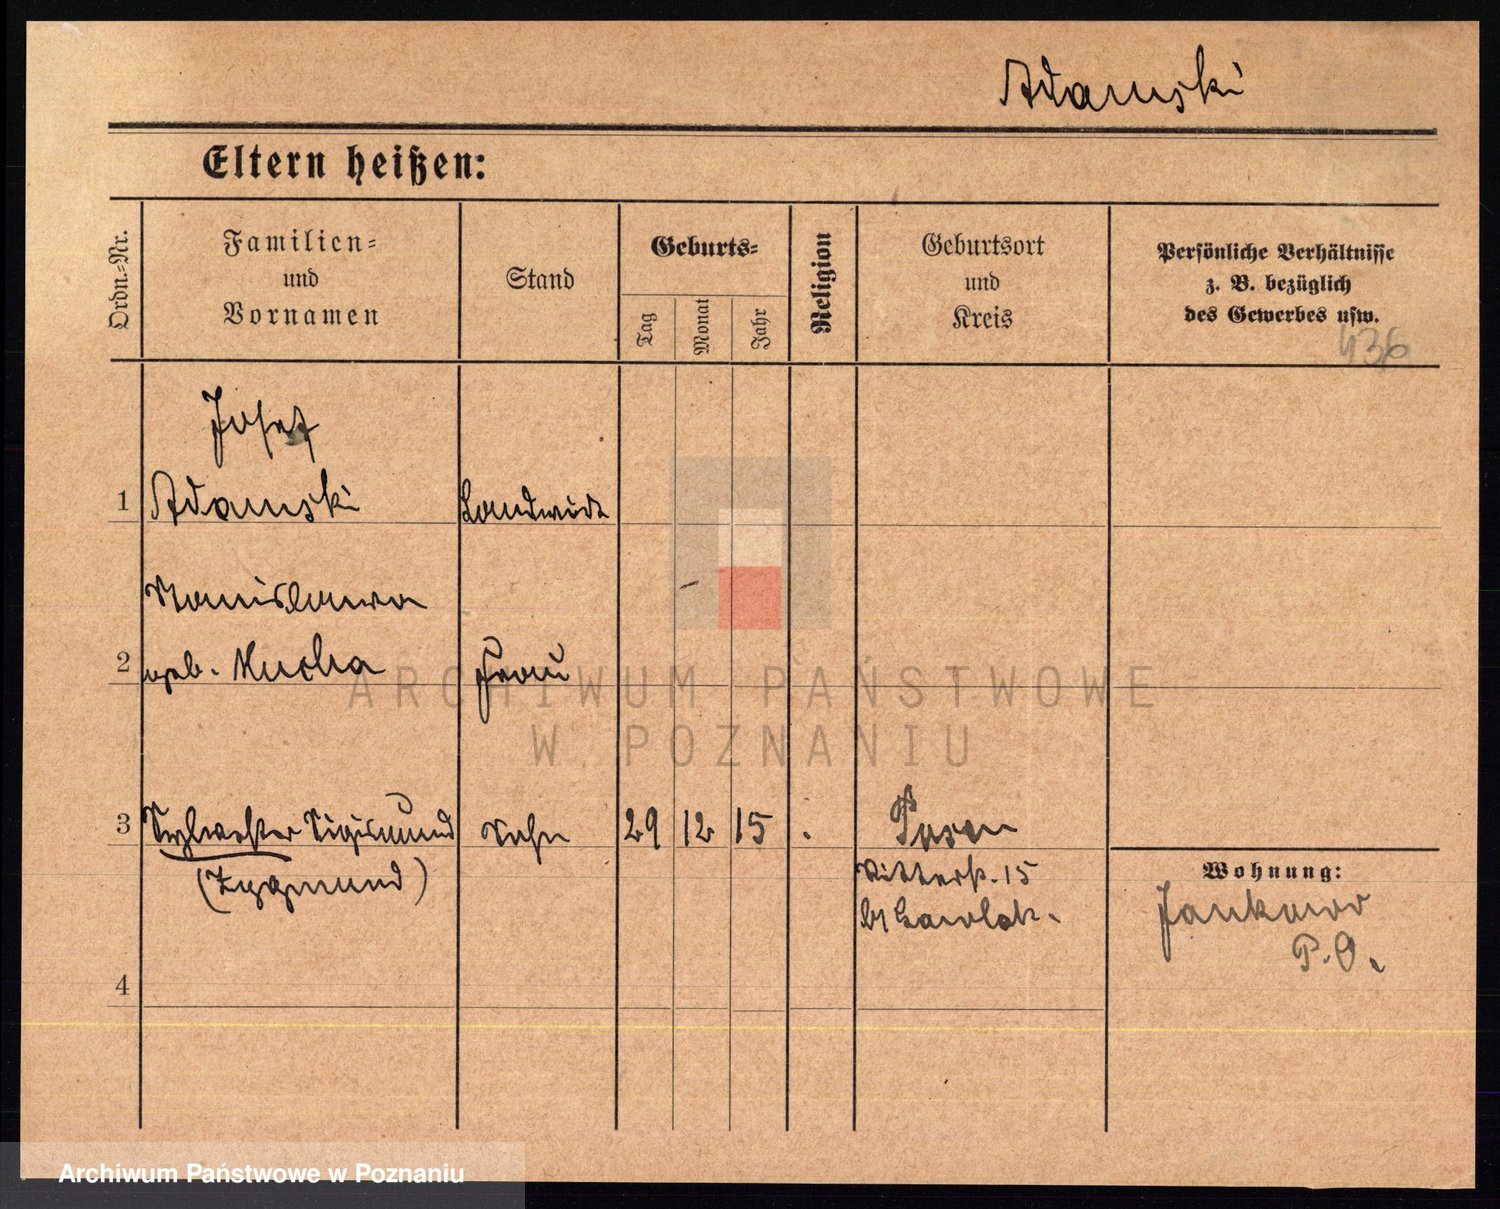 Adamski
Eltern heißen:
Ordn.-Nr.
Familien-
und
Vornamen
Stand
Geburts-
Tag
Monat
Jahr
Religion
Geburtsort
und
Kreis
Persönliche Verhältnisse
z. B. bezüglich
des Gewerbes usw.
436
Josef
1 Adamski Landwirt
Stanislawa
2 geb. Mucha Frau
3 Sylwester Sigismund Sohn 29 12 15 Posen
(Zygmund)
Ritterstr. 15
b/
Wohnung:
Jankowo
P. O.
4
ARCHIWUM PAŃSTWOWE
W POZNANIU
Archiwum Państwowe w Poznaniu